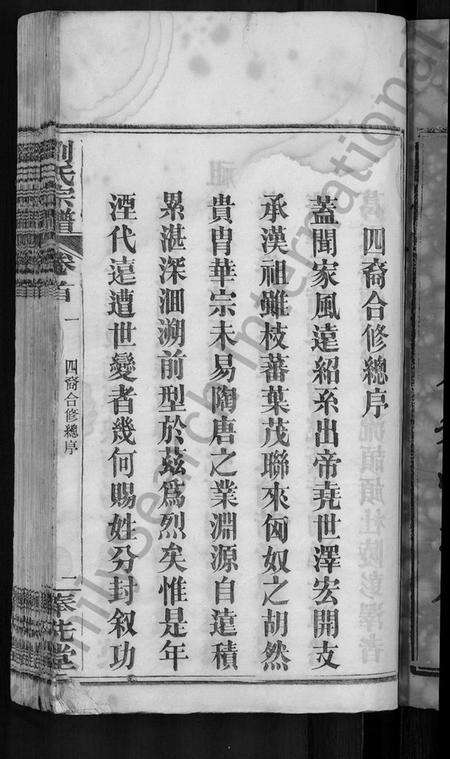 四裔合修總序
蓋聞家風遠紹系出帝堯世澤宏開支
承漢祖雖枝蕃葉茂聯來匈奴之胡然
貴胄華宗未易陶唐之業淵源自遠積
累湛深洄溯前型於茲為烈矣惟是年
湮代遠遭世變者幾何賜姓分封叙功
劉氏宗譜
卷首
一
四裔合修總序